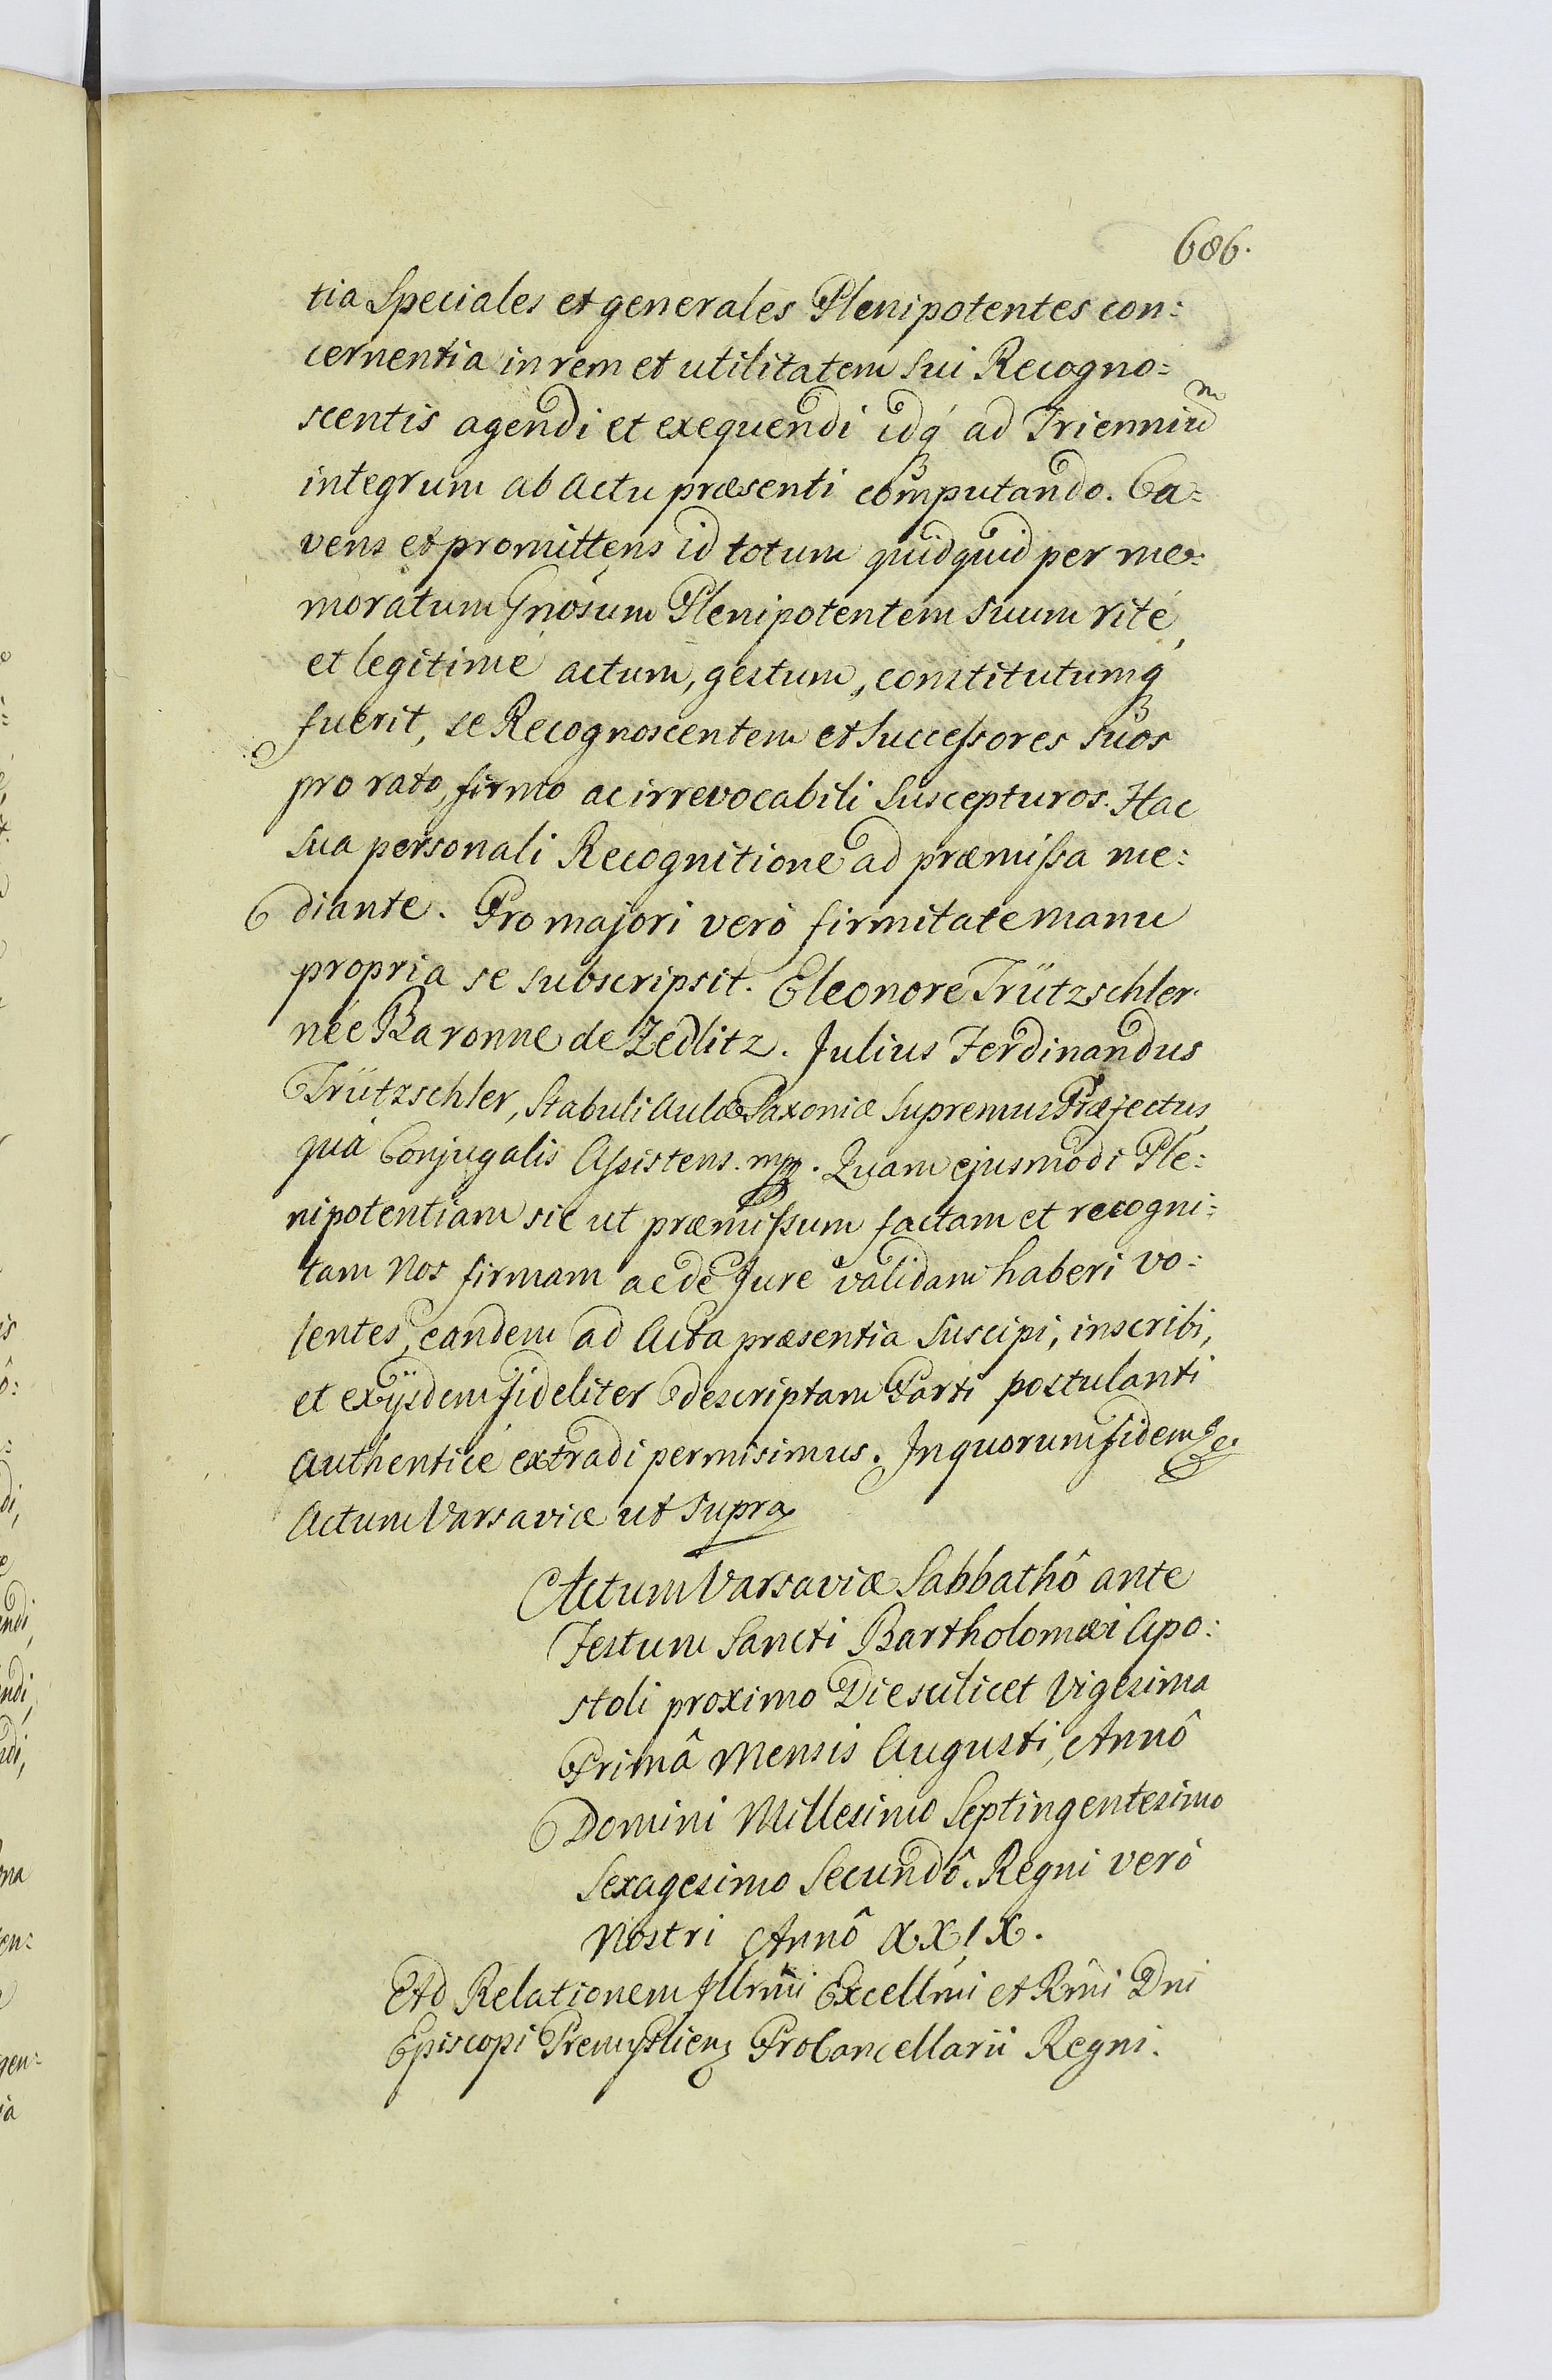 686.
tia Speciales et generales Plenipotentes con:
cernentia in rem et utilitatem sui Recogno:
scentis agendi et exequendi idq́ ad Trienniu͂m
integrum ab actu præsenti computando. Ca:
vens et promittens id totum quidquid per me:
moratum Gnosum Plenipotentem suum rité,
et legitimé actum, gestum, constitutumq́
fuerit, se Recognoscentem et Successores suos
pro rato, firmo ac irrevocabili suscepturos. Hac
sua personali Recognitione ad præmissa me:
diante. Pro majori verò firmitate manu
propria se subscripsit. Eleonore Trützschler
née Baronne de Zedlitz. Julius Ferdinandus
Trützschler, Stabuli Aulæ Saxoniæ Supremus Præfectus,
quà Conjugalis Assistens. mp. Quam ejusmodi Ple:
nipotentiam sic ut præmissum factam et recogni:
tam Nos firmam ac de Jure validam haberi vo:
lentes, eandem ad Acta præsentia suscipi, inscribi,
et ex ijsdem fideliter descriptam Parti postulanti
authenticé extradi permisimus. In quorum fidem &c.
Actum Varsaviæ ut supra
Actum Varsaviæ Sabbathô ante
Festum Sancti Bartholomæi Apo:
stoli proximo Die scilicet Vigesima
Primâ Mensis Augusti, Annô
Domini Millesimo Septingentesimo
Sexagesimo Secundô. Regni verò
Nostri Annô XXIX.
Ad Relationem Illrmi Excellmi et Rmi Dni
Episcopi Premyslien ProCancellarii Regni.